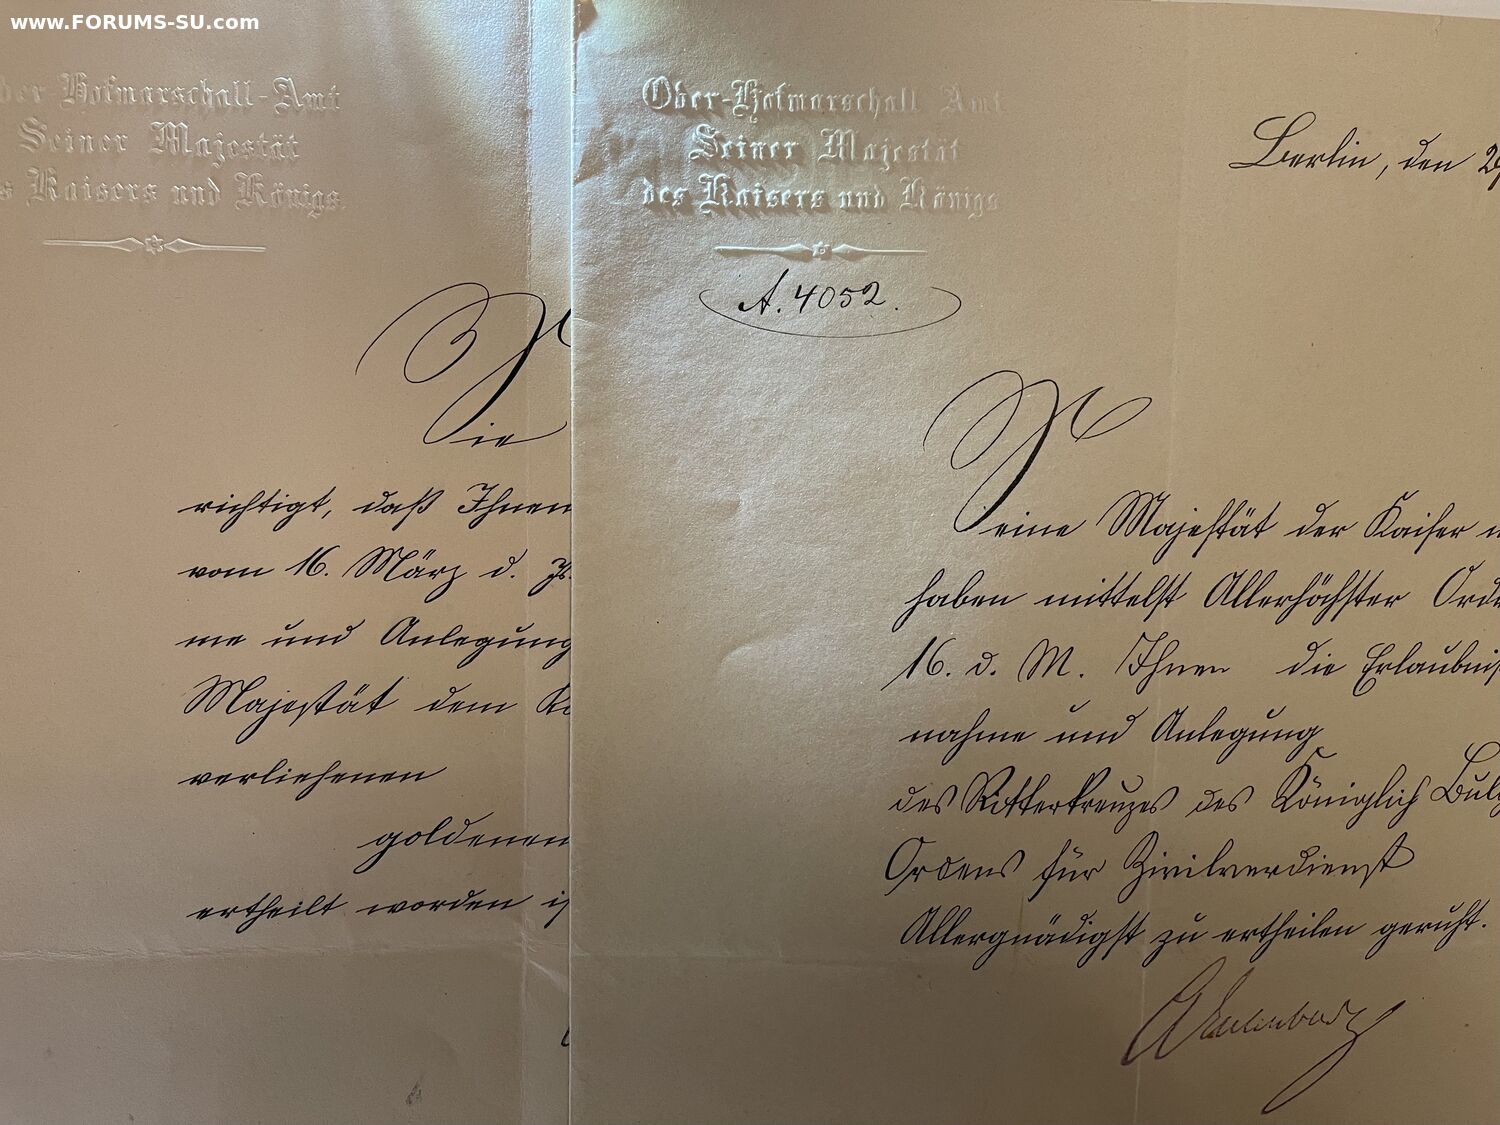 www.FORUMS-SU.com
Hofmarschall-Amt
Seiner Majestät
Kaisers und Königs.
Sie
richtigt, daß Ihnen
vom 16. März d. Js.
me und Anlegung
Majestät dem
verliehenen
goldenen
ertheilt worden
Ober-Hofmarschall Amt
Seiner Majestät
des Kaisers und Königs
A. 4052.
Berlin, den
Seine Majestät der Kaiser
haben mittelst Allerhöchster
16. d. M. Ihnen die Erlaubnis
nahme und Anlegung
des Ritterkreuzes des Königlich
Ordens für Zivilverdienst
Allergnädigst zu ertheilen geruht.